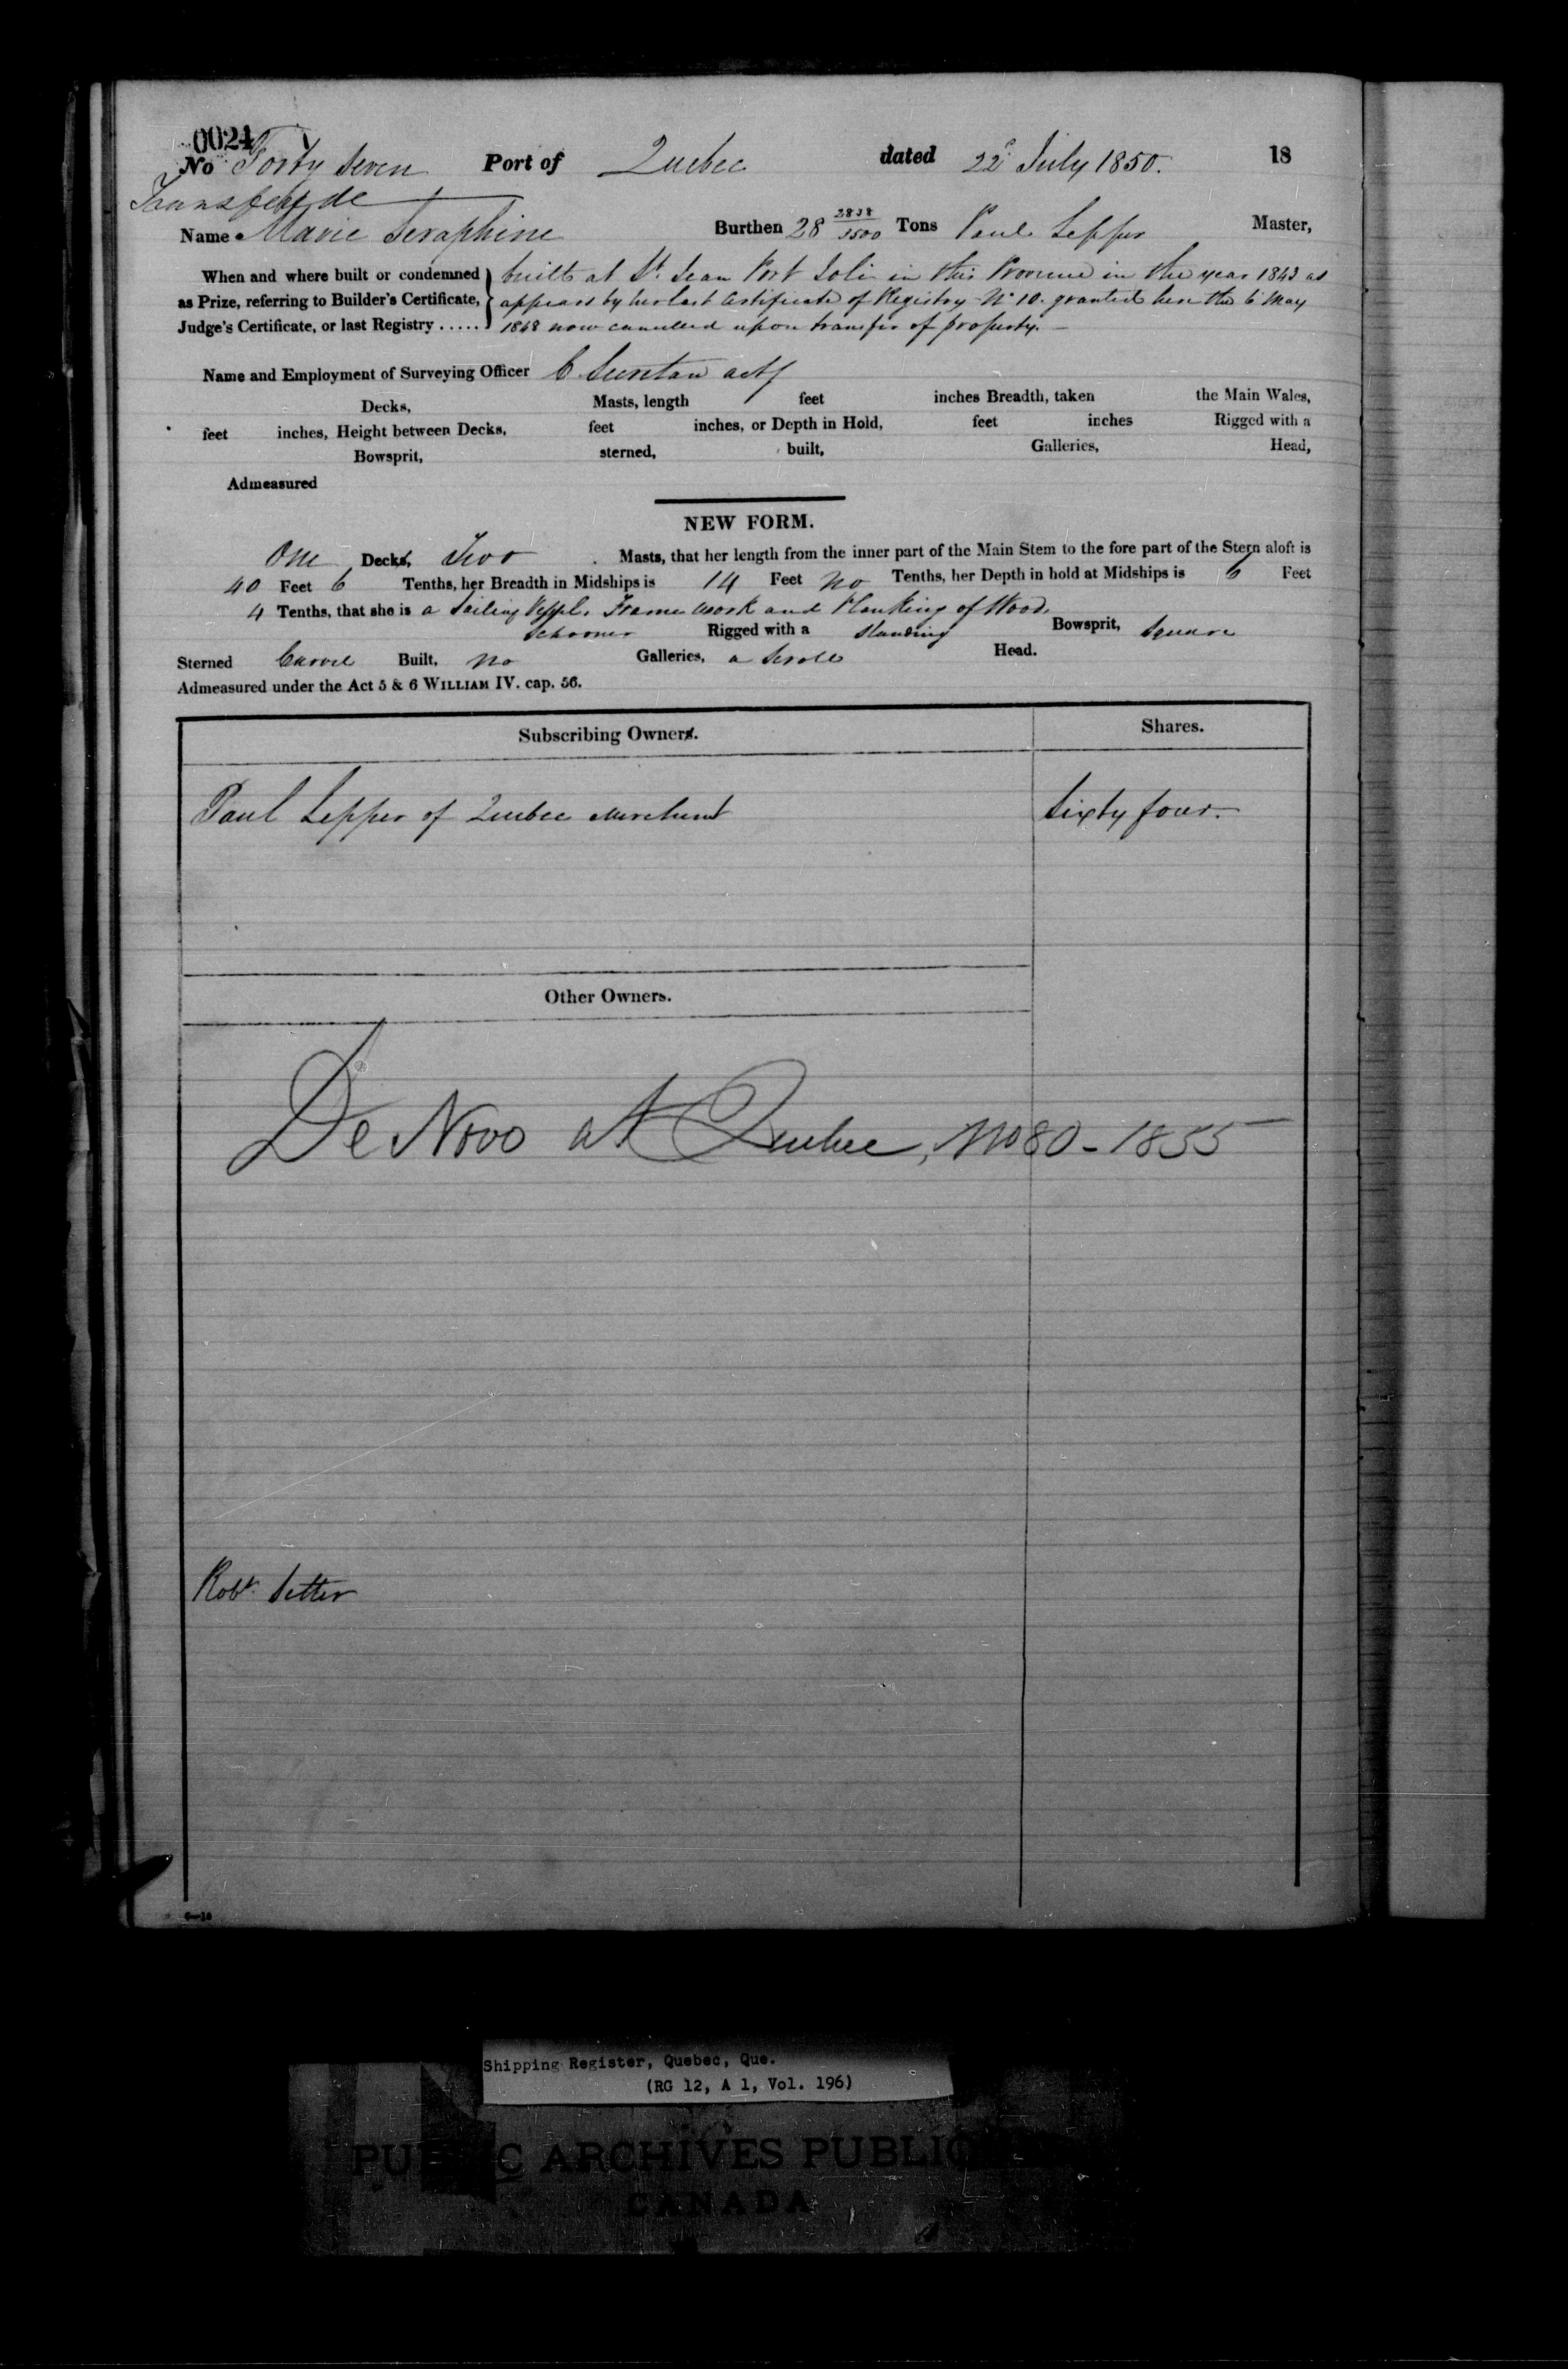 0024
No Forty Seven Port of Quebec dated 22d July 1850. 18
Transfer de
Name Marie Seraphine Burthen 28 2838/3500 Tons Paul Lepper Master,
When and where built or condemned as Prize, referring to Builder's Certificate, Judge's Certificate, or last Registry .....
built at St. Jean Port Joli in this Province in the year 1843 as
appears by her last Certificate of Registry No 10. granted here the 6 May
1848 now cancelled upon transfer of property. —
Name and Employment of Surveying Officer
Decks, Masts, length feet inches Breadth, taken the Main Wales,
feet inches, Height between Decks, feet inches, or Depth in Hold, feet inches Rigged with a
Bowsprit, sterned, built, Galleries, Head,
Admeasured
NEW FORM.
One Deck, Two Masts, that her length from the inner part of the Main Stem to the fore part of the Stern aloft is
40 Feet 6 Tenths, her Breadth in Midships is 14 Feet No Tenths, her Depth in hold at Midships is 6 Feet
4 Tenths, that she is a Sailing Vessel. Frame work and Planking of Wood,
Schooner Rigged with a Standing Bowsprit, Square
Sterned Carvel Built, No Galleries, a Scroll Head.
Admeasured under the Act 5 & 6 WILLIAM IV. cap. 56.
Subscribing Owner. Shares.
Paul Lepper of Quebec Merchant Sixty four.
Other Owners.
De Novo at Quebec, No 80 - 1855
Robt. Setter
6—10
Shipping Register, Quebec, Que.
(RG 12, A 1, Vol. 196)
PUBLIC ARCHIVES PUBLIC
CANADA